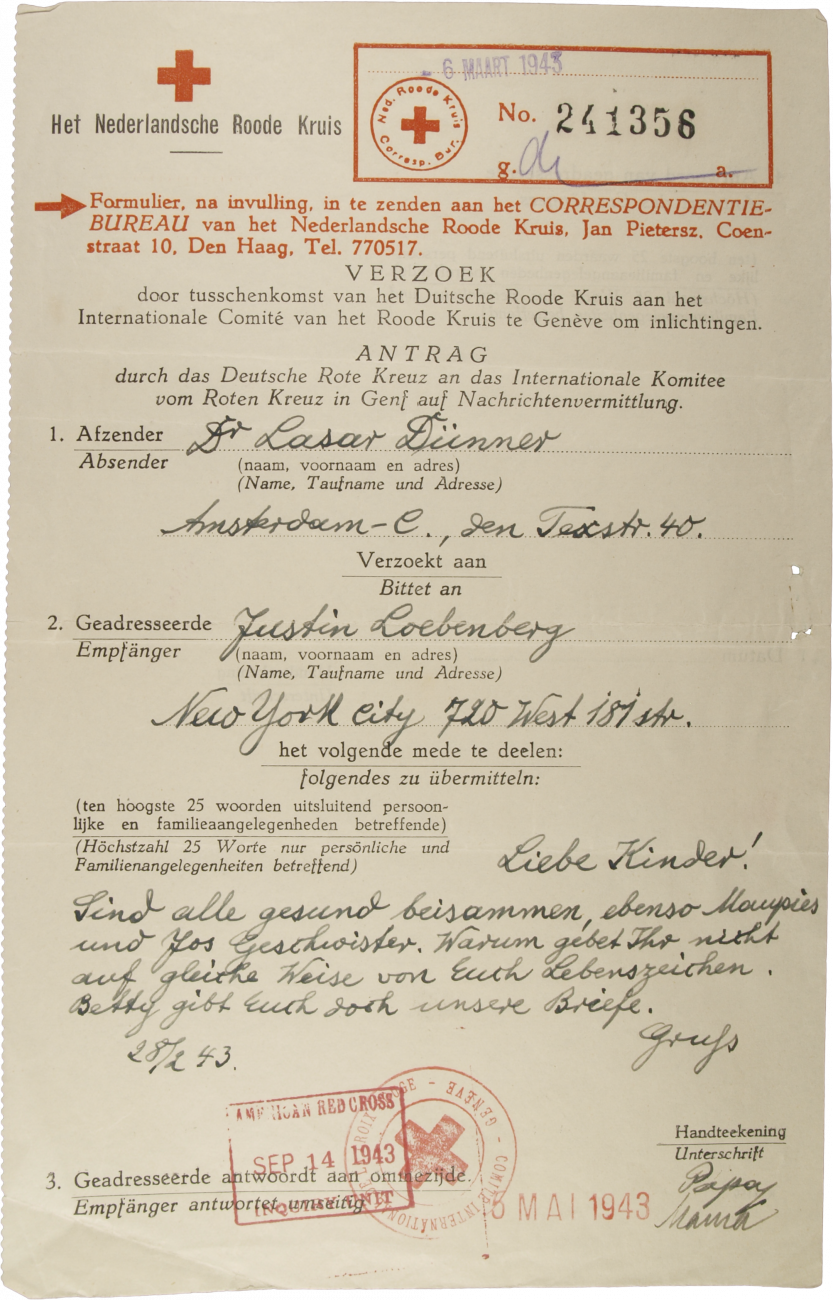 - 6 MAART 1943
Het Nederlandsche Roode Kruis
Ned. Roode Kruis
Corresp. Bur.
No. 241356
g. a.
Formulier, na invulling, in te zenden aan het CORRESPONDENTIE-
BUREAU van het Nederlandsche Roode Kruis, Jan Pietersz. Coen-
straat 10, Den Haag, Tel. 770517.
VERZOEK
door tusschenkomst van het Duitsche Roode Kruis aan het
Internationale Comité van het Roode Kruis te Genève om inlichtingen.
ANTRAG
durch das Deutsche Rote Kreuz an das Internationale Komitee
vom Roten Kreuz in Genf auf Nachrichtenvermittlung.
1. Afzender Dr Lasar Dünner
Absender (naam, voornaam en adres)
(Name, Taufname und Adresse)
Amsterdam-C., den Texstr. 40.
Verzoekt aan
Bittet an
2. Geadresseerde Justin Loebenberg
Empfänger (naam, voornaam en adres)
(Name, Taufname und Adresse)
New York City 720 West 181 str.
het volgende mede te deelen:
folgendes zu übermitteln:
(ten hoogste 25 woorden uitsluitend persoon-
lijke en familieaangelegenheden betreffende)
(Höchstzahl 25 Worte nur persönliche und
Familienangelegenheiten betreffend)
Liebe Kinder!
Sind alle gesund beisammen, ebenso
und Jos Geschwister. Warum gebet Ihr nicht
auf gleiche Weise von Euch Lebenszeichen.
Betty gibt Euch doch unsere Briefe.
28/2 43.
Gruss
AMERICAN RED CROSS
SEP 14 1943
INQUIRY UNIT
GENÈVE - COMITÉ INTERNATIONAL
Handteekening
Unterschrift
3. Geadresseerde antwoordt aan ommezijde.
Empfänger antwortet umseitig
MAI 1943
Papa
Mama